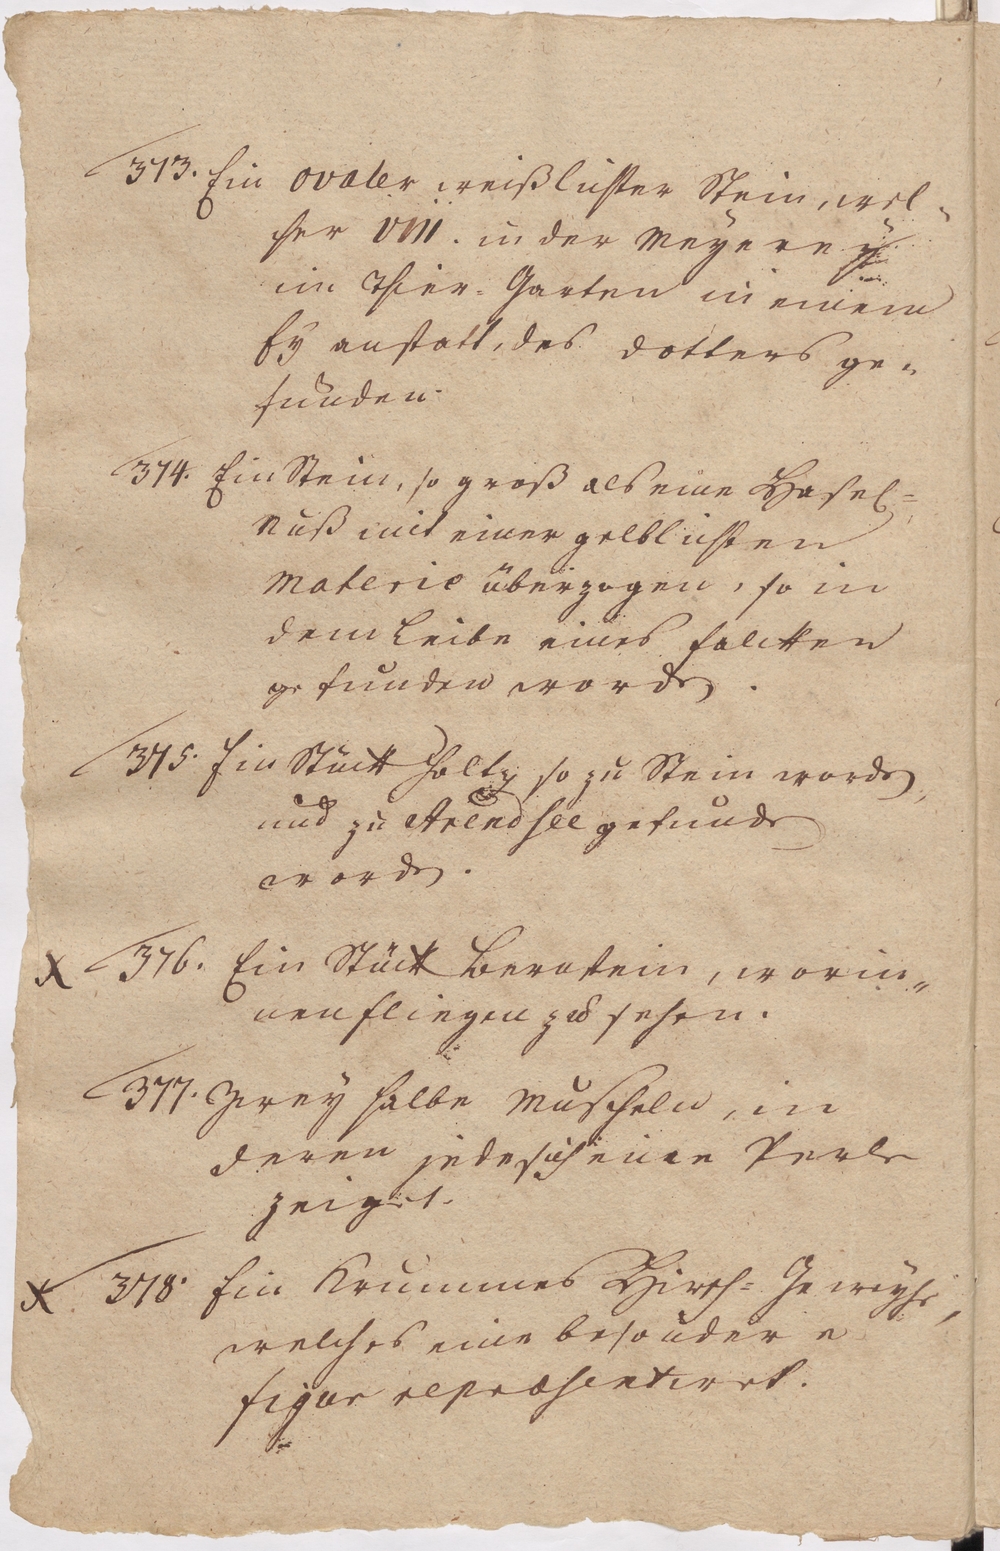 373. Ein ovaler weißlichter Stein, wel-
cher VIII. in der Meyerey
im Thier-Garten in einem
Ey anstatt, des dotters ge-
funden.
374. Ein Stein, so groß als eine Hasel-
Nuß mit einer gelblichten
Materie überzogen, so in
dem Leibe eines falcken
gefunden worden.
375. Ein Stück Holtz so zu Stein worden,
und zu Arendsee gefunden
worden.
X 376. Ein Stück Bernstein, worin-
nen fliegen zu sehen.
377. Zwey halbe Muscheln, in
deren jede sich eine Perle
zeiget.
X 378. Ein Krummes Hirsch-Geweyhe,
welches eine besondere
figur repræsentiret.